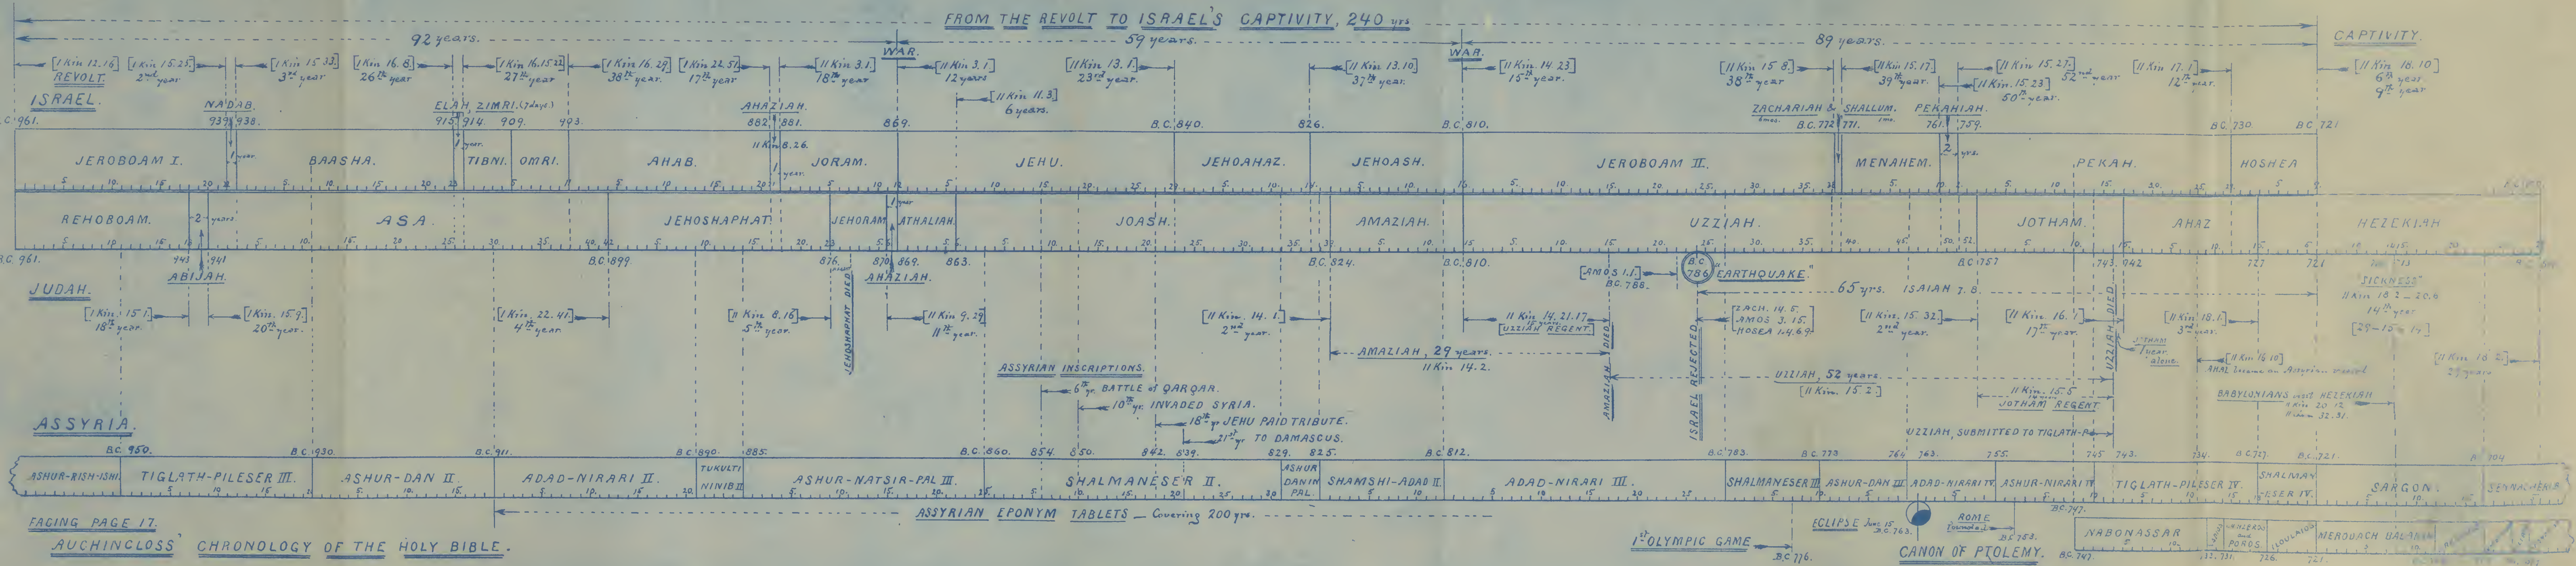 FROM THE REVOLT TO ISRAEL'S CAPTIVITY, 240 yrs
92 years.
59 years.
89 years.
CAPTIVITY.
WAR.
WAR.
[I Kin 12.16]
REVOLT.
[I Kin 15.25]
2nd year
[I Kin 15.33]
3rd year
[I Kin 16.8]
26th year
[I Kin 16.15.22]
27th year
[I Kin 16.29]
38th year.
[I Kin 22.51]
17th year
[II Kin 3.1]
18th year
[II Kin 3.1]
12 years
[II Kin 11.3]
6 years.
[II Kin 13.1]
23rd year
[II Kin 13.10]
37th year
[II Kin 14.23]
15th year.
[II Kin 15 8.]
38th year
[II Kin 15.17]
39th year.
[II Kin 15.27]
52nd year
[II Kin. 15.23]
50th year.
[II Kin 17.1]
12th year.
[II Kin 18.10]
6th year
9th year.
ISRAEL.
NADAB.
ELAH
ZIMRI. (7 days)
AHAZIAH.
ZACHARIAH &
6mos.
SHALLUM.
1mo.
PEKAHIAH.
961. 939. 938. 915. 914. 909. 903. 882. 881. 869. B.C. 840. 826. B.C. 810. B.C. 772. 771. 761. 759. B.C. 730. B.C. 721
II Kin 8.26.
JEROBOAM I. 1 year. BAASHA. 1 year. TIBNI. OMRI. AHAB. 1 year. JORAM. JEHU. JEHOAHAZ. JEHOASH. JEROBOAM II. MENAHEM. 2 yrs. PEKAH. HOSHEA
REHOBOAM. 2 years ASA. JEHOSHAPHAT JEHORAM 1 year ATHALIAH. JOASH. AMAZIAH. UZZIAH. JOTHAM. AHAZ HEZEKIAH
B.C. 961. 943 941 B.C. 899. 876. 870. 869. 863. B.C. 824. B.C. 810. B.C. 786 B.C. 757 743. 942 727 721
ABIJAH.
AHAZIAH.
"EARTHQUAKE."
[AMOS 1.1.]
B.C. 788.
65 yrs. ISAIAH 7.8.
JUDAH.
[I Kin. 15 1.]
18th year.
[I Kin. 15 9.]
20th year.
[I Kin. 22.41]
4th year
[II Kin 8.16]
5th year
JEHOSHAPHAT DIED
[II Kin 9.29]
11th year.
[II Kin. 14.1.]
2nd year.
[II Kin 14.21.17
15 years.
UZZIAH REGENT]
[ZACH. 14.5.
AMOS 3.15.
HOSEA 1.4.6.9]
[II Kin 15 32]
2nd year.
[II Kin 16.1]
17th year.
UZZIAH DIED
[II Kin 18.1.]
3rd year.
"SICKNESS"
II Kin 18 2 - 20.6
14th year
[29-15 = 14]
JOTHAM
1 year
alone
[II Kin 16 10]
AHAZ became an Assyrian vassal
[II Kin 18 2]
29 years
AMAZIAH, 29 years.
II Kin 14.2.
AMAZIAH DIED
ISRAEL REJECTED
UZZIAH, 52 years.
[II Kin. 15 2.]
II Kin. 15.5
JOTHAM REGENT
BABYLONIANS visit HEZEKIAH
II Kin 20 12
II Chron 32.31.
UZZIAH, SUBMITTED TO TIGLATH-P.
ASSYRIAN INSCRIPTIONS.
6th yr. BATTLE of QARQAR.
10th yr. INVADED SYRIA.
18th yr JEHU PAID TRIBUTE.
21st yr TO DAMASCUS.
ASSYRIA.
B.C. 950. B.C. 930. B.C. 911. B.C. 890. 885. B.C. 860. 854. 850. 842. 839. 829. 825. B.C. 812. B.C. 783. B.C. 773 764 763. 755. 745 743. 734. B.C. 727. B.C. 721. 704
ASHUR-RISH-ISHI. TIGLATH-PILESER III. ASHUR-DAN II. ADAD-NIRARI II. TUKULTI NINIB II ASHUR-NATSIR-PAL III. SHALMANESER II. ASHUR DANIN PAL. SHAMSHI-ADAD II. ADAD-NIRARI III. SHALMANESER III ASHUR-DAN III ADAD-NIRARI IV ASHUR-NIRARI IV TIGLATH-PILESER IV. SHALMANESER IV. SARGON. SENNACHERIB
ASSYRIAN EPONYM TABLETS — Covering 200 yrs.
B.C. 747.
FACING PAGE 17.
AUCHINCLOSS' CHRONOLOGY OF THE HOLY BIBLE.
1st OLYMPIC GAME
B.C. 776.
ECLIPSE June 15
B.C. 763.
ROME
founded
B.C. 753.
CANON OF PTOLEMY.
B.C. 747
NABONASSAR and POROS ILOULAIOS MERODACH BALADAN
732. 731. 726. 721.